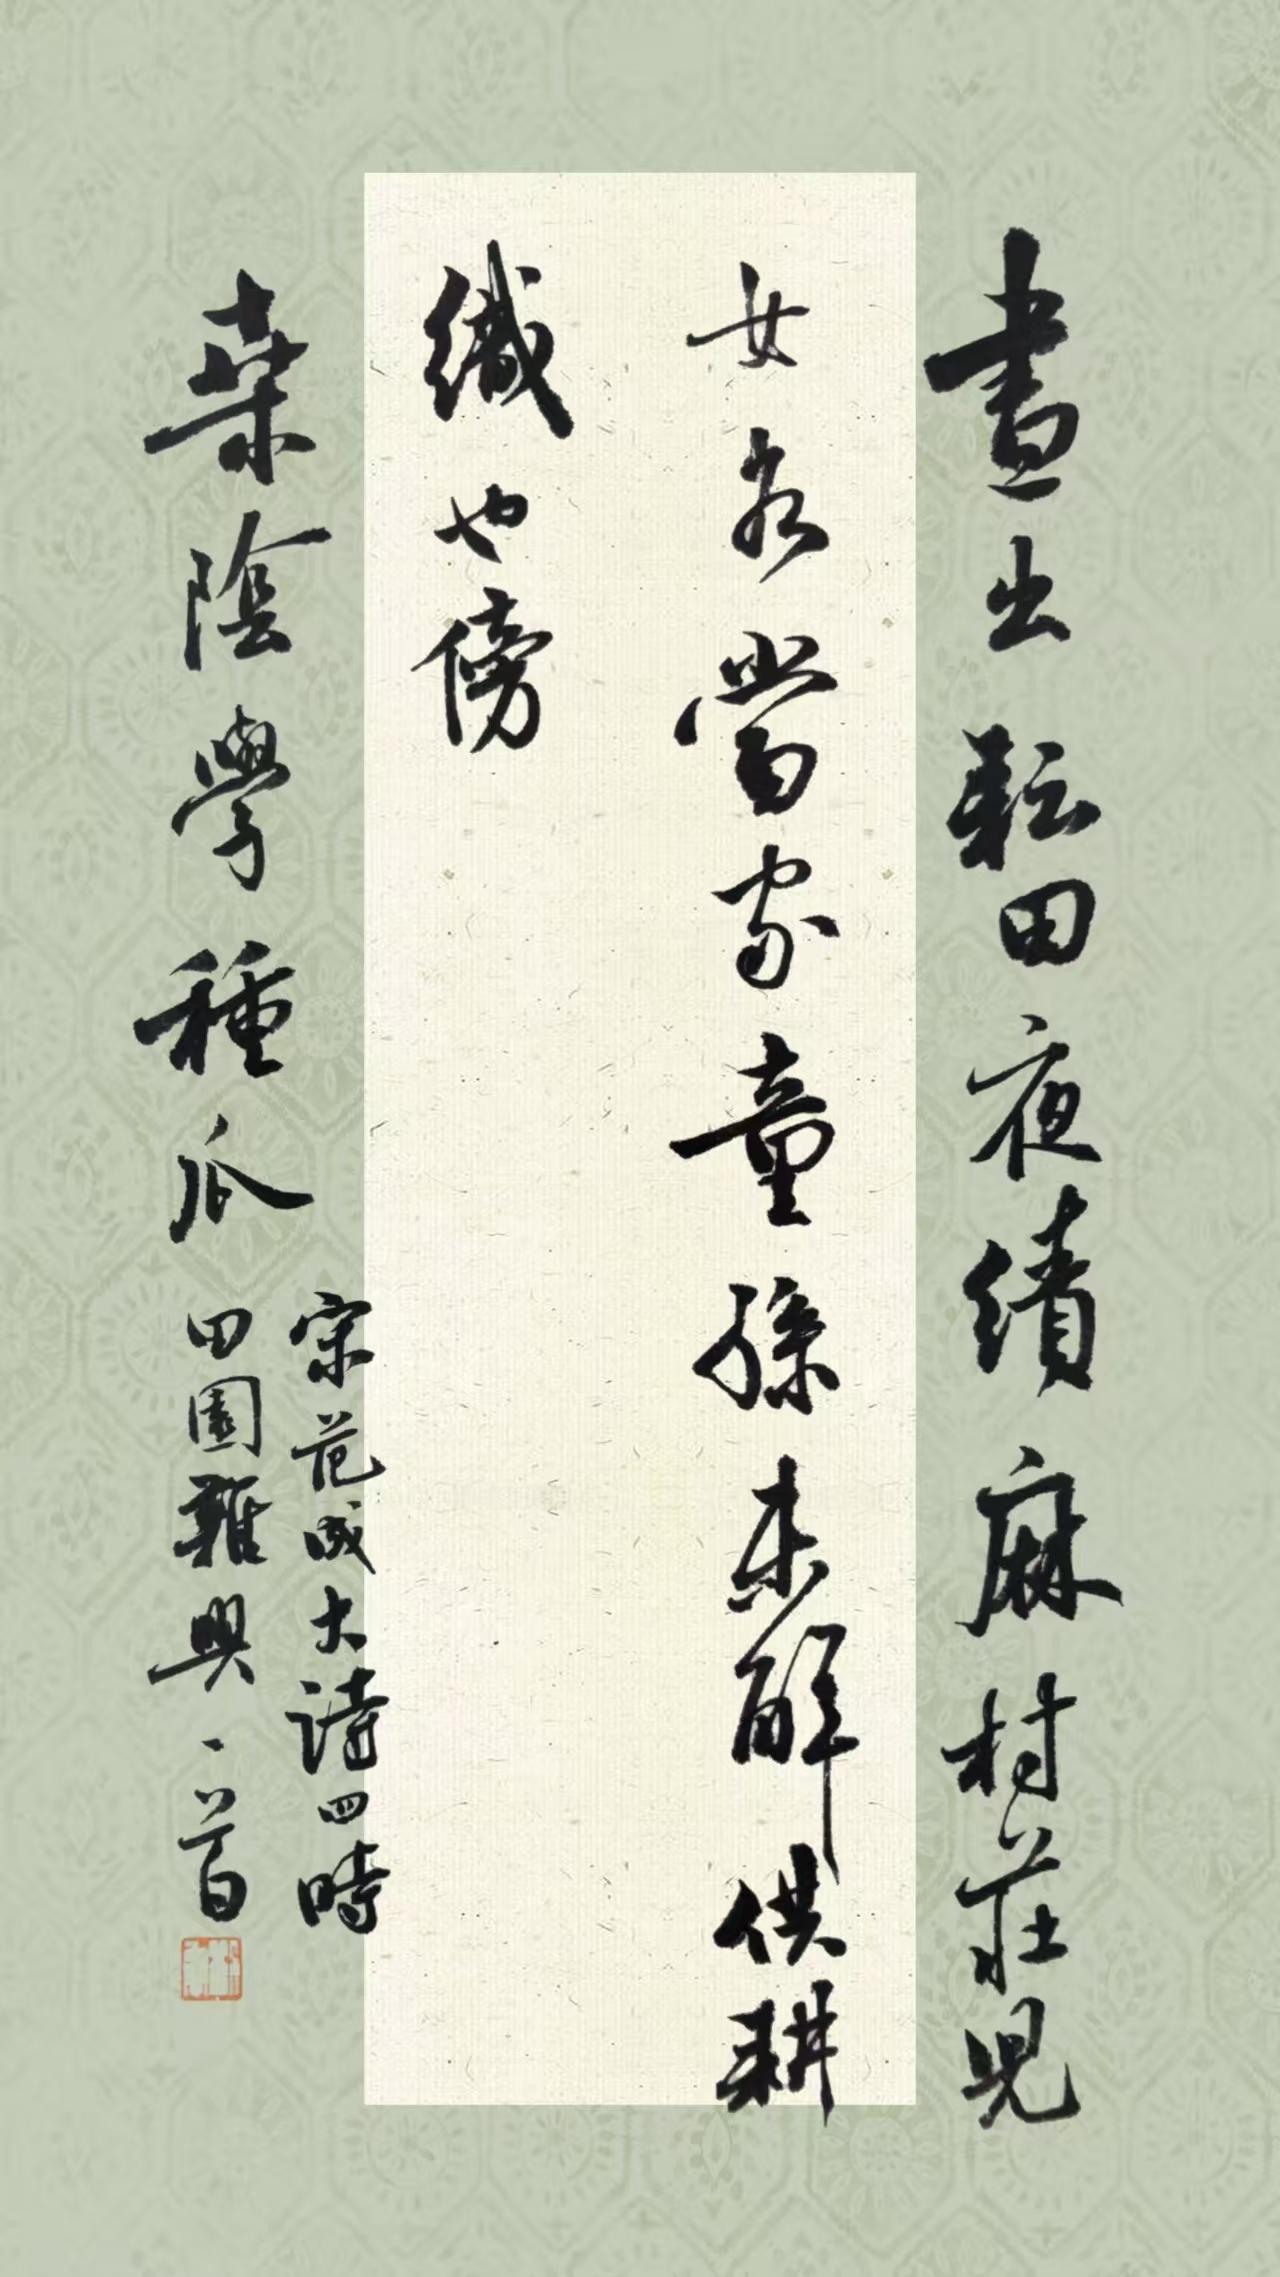 晝出耘田夜績麻村莊兒
女各當家童孫未解供耕
織也傍
桑陰學種瓜
宋范成大詩四時
田園雜興一首